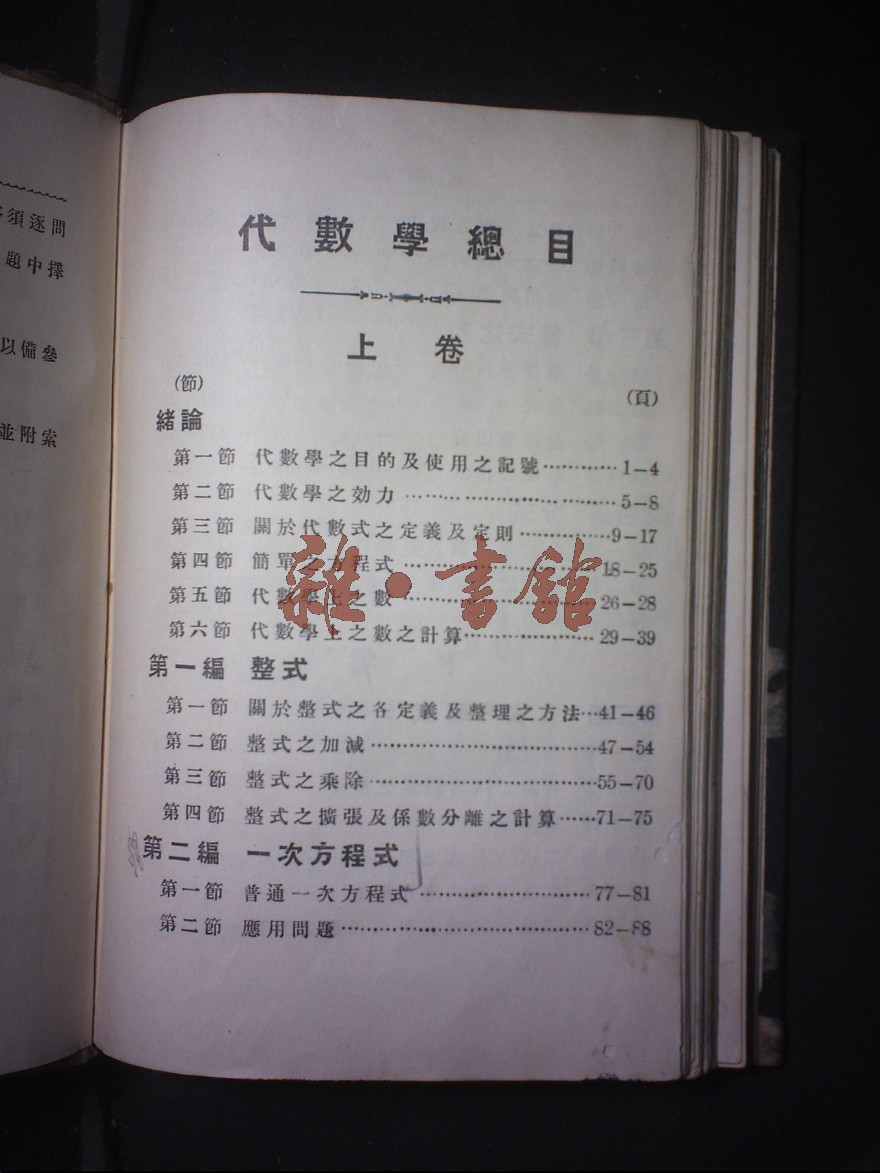 須逐問
題中擇
以備參
並附索
代數學總目
上卷
(節)
(頁)
緒論
第一節 代數學之目的及使用之記號…………1—4
第二節 代數學之効力…………………………5—8
第三節 關於代數式之定義及定則……………9—17
第四節 簡單之方程式…………………………18—25
第五節 代數學上之數…………………………26—28
第六節 代數學上之數之計算…………………29—39
第一編 整式
第一節 關於整式之各定義及整理之方法…41—46
第二節 整式之加減……………………………47—54
第三節 整式之乘除……………………………55—70
第四節 整式之擴張及係數分離之計算……71—75
第二編 一次方程式
第一節 普通一次方程式………………………77—81
第二節 應用問題………………………………82—88
雜·書館